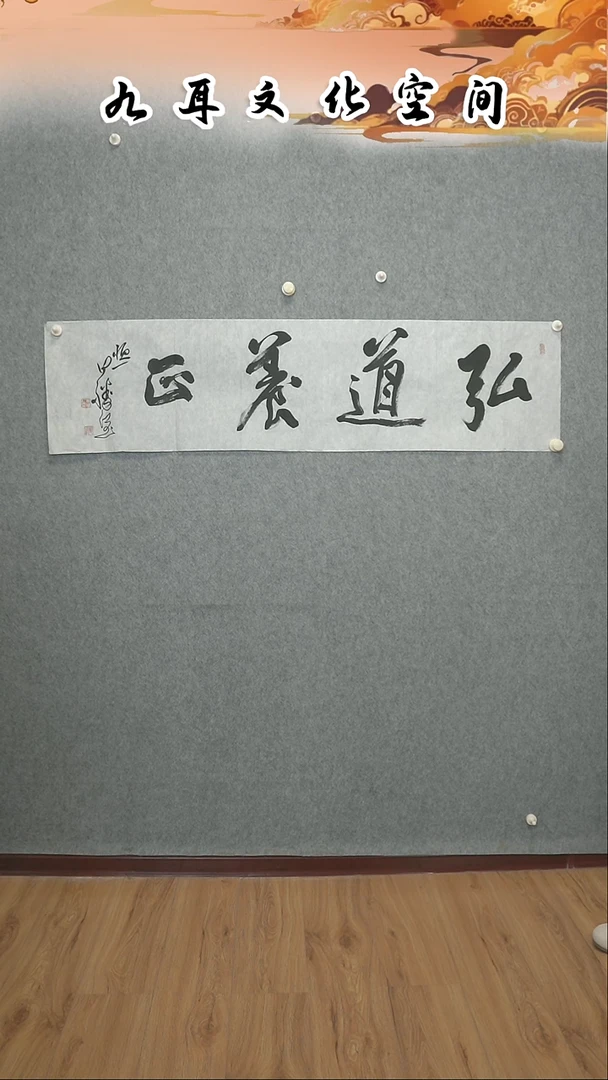 九耳文化空间
弘道養正